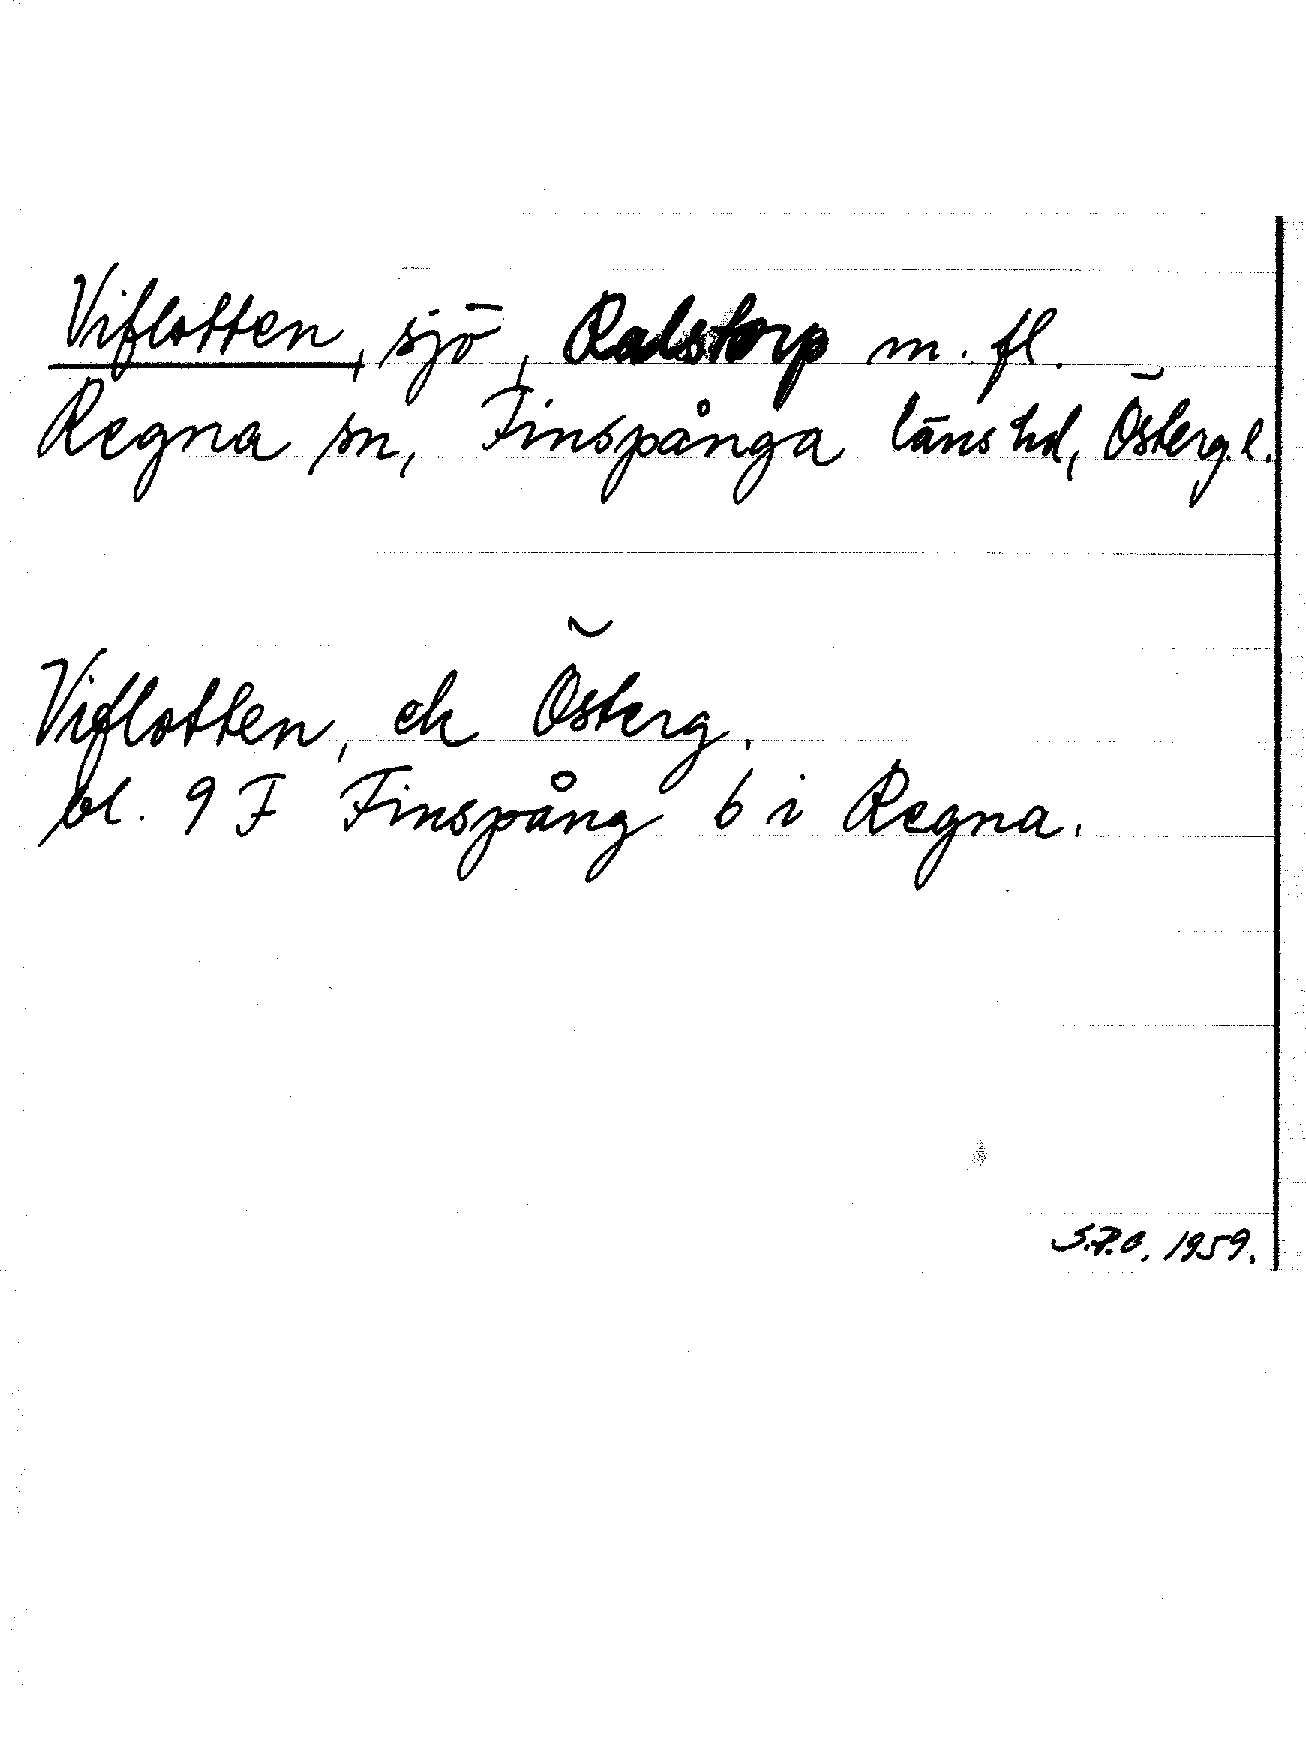 Viflotten, sjö, Ralstorp m. fl.
Regna sn, Finspånga läns hd, Österg. l.
Viflotten, ek Österg.
bl. 9 F Finspång 6 i Regna.
S.P.O. 1959.